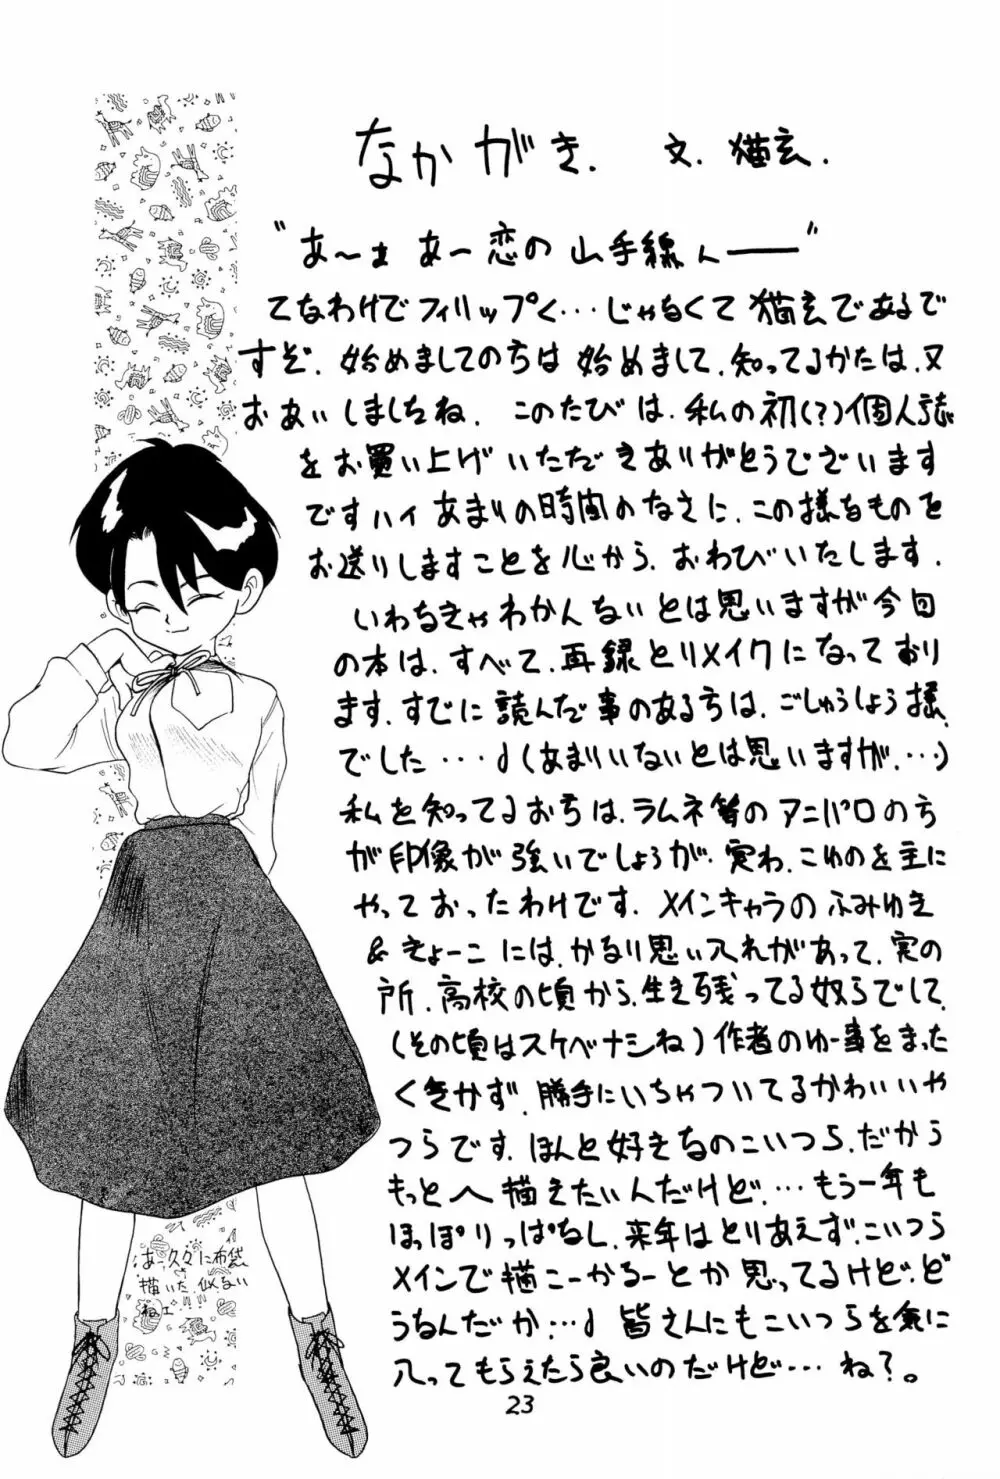 なかがき. 文. 猫玄.
"あ〜ぁ あー恋の山手線ん――"
てなわけでフィリップく…じゃなくて猫玄であるで
すぞ. 始めましての方は始めまして. 知ってるかたは、又
おあいしましたね. このたびは. 私の初(?)個人誌
をお買い上げいただきありがとうございます
ですハイ あまりの時間のなさに. この様なものを
お送りしますことを心から. おわびいたします.
いわなきゃわかんないとは思いますが今回
の本は. すべて. 再録とリメイクになっており
ます. すでに読んだ事のある方は. ごしゅうしょう様.
でした…♩(あまりいないとは思いますが….)
私を知ってるお方は. ラムネ等のアニパロの方
が印象が強いでしょうが. 実わ. こゆのを主に
やっておったわけです. メインキャラのふみゆき
&きょーこには. かなり思い入れがあって. 実の
所. 高校の頃から. 生き残ってる奴らでして.
(その頃はスケベナシね)作者のゆー事をまった
くきかず. 勝手にいちゃついてるかわいいや
つらです. ほんと好きなのこいつら. だから
もっとへ描きたいんだけど.…もう一年も
ほっぽりっぱなし. 来年はとりあえず. こいつら
メインで描こーかなーとか思ってるけど. ど
うなんだか…♩皆さんにもこいつらを気に
入ってもらえたら良いのだけど…ね?。
あー久々に布袋
描いた. 似ない
ねェ
23